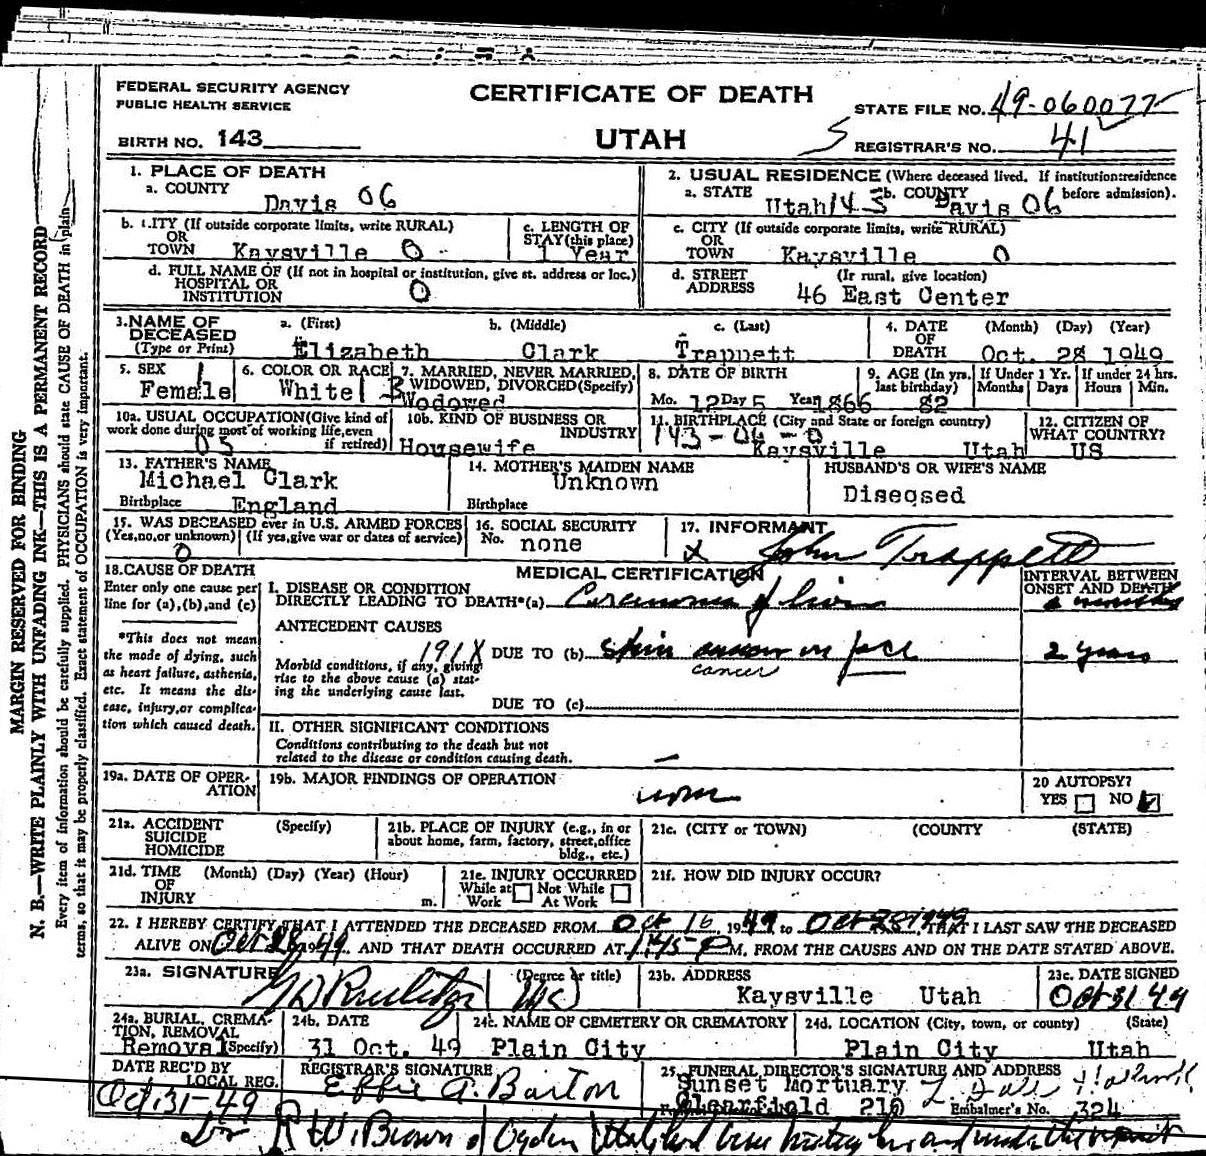 FEDERAL SECURITY AGENCY
PUBLIC HEALTH SERVICE
CERTIFICATE OF DEATH
STATE FILE NO. 49-060077
BIRTH NO. 143
UTAH
5 REGISTRAR'S NO. 41
1. PLACE OF DEATH
a. COUNTY
Davis 06
2. USUAL RESIDENCE (Where deceased lived. If institution: residence before admission).
a. STATE Utah 143 b. COUNTY Davis 06
b. CITY (If outside corporate limits, write RURAL)
OR
TOWN Kaysville 0
c. LENGTH OF
STAY (this place)
1 Year
c. CITY (If outside corporate limits, write RURAL)
OR
TOWN Kaysville 0
d. FULL NAME OF (If not in hospital or institution, give st. address or loc.)
HOSPITAL OR
INSTITUTION 0
d. STREET (If rural, give location)
ADDRESS 46 East Center
3. NAME OF
DECEASED
(Type or Print)
a. (First) b. (Middle) c. (Last)
Elizabeth Clark Trappett
4. DATE (Month) (Day) (Year)
OF
DEATH Oct. 28 1949
5. SEX 1
Female
6. COLOR OR RACE
White 1
7. MARRIED, NEVER MARRIED,
3 WIDOWED, DIVORCED (Specify)
Wodowed
8. DATE OF BIRTH
Mo. 12 Day 5 Year 1866
9. AGE (In yrs. last birthday) If Under 1 Yr. If under 24 hrs.
Months Days Hours Min.
82
10a. USUAL OCCUPATION (Give kind of
work done during most of working life, even
if retired)
05
10b. KIND OF BUSINESS OR
INDUSTRY
Housewife
11. BIRTHPLACE (City and State or foreign country)
143-06-0
Kaysville Utah
12. CITIZEN OF
WHAT COUNTRY?
US
13. FATHER'S NAME
Michael Clark
Birthplace England
14. MOTHER'S MAIDEN NAME
Unknown
Birthplace
HUSBAND'S OR WIFE'S NAME
Diseqsed
15. WAS DECEASED ever in U.S. ARMED FORCES
(Yes, no, or unknown) (If yes, give war or dates of service)
0
16. SOCIAL SECURITY
No. none
17. INFORMANT
x John Trappett
18. CAUSE OF DEATH
Enter only one cause per
line for (a), (b), and (c)
*This does not mean
the mode of dying, such
as heart failure, asthenia,
etc. It means the dis-
ease, injury, or complica-
tion which caused death.
MEDICAL CERTIFICATION
INTERVAL BETWEEN
ONSET AND DEATH
I. DISEASE OR CONDITION
DIRECTLY LEADING TO DEATH*(a) of
months
ANTECEDENT CAUSES
191X DUE TO (b) Skin cancer on face
cancer
2 years
Morbid conditions, if any, giving
rise to the above cause (a) stat-
ing the underlying cause last.
DUE TO (c)
II. OTHER SIGNIFICANT CONDITIONS
Conditions contributing to the death but not
related to the disease or condition causing death. —
19a. DATE OF OPER-
ATION
19b. MAJOR FINDINGS OF OPERATION
20 AUTOPSY?
YES NO ✓
21a. ACCIDENT (Specify)
SUICIDE
HOMICIDE
21b. PLACE OF INJURY (e.g., in or
about home, farm, factory, street, office
bldg., etc.)
21c. (CITY or TOWN) (COUNTY) (STATE)
21d. TIME (Month) (Day) (Year) (Hour)
OF
INJURY m.
21e. INJURY OCCURRED
While at Work Not While At Work
21f. HOW DID INJURY OCCUR?
22. I HEREBY CERTIFY THAT I ATTENDED THE DECEASED FROM Oct 16, 1949 to Oct 28 1949 THAT I LAST SAW THE DECEASED
ALIVE ON Oct 28, 49, AND THAT DEATH OCCURRED AT 1:45 P M. FROM THE CAUSES AND ON THE DATE STATED ABOVE.
23a. SIGNATURE (Degree or title)
23b. ADDRESS
Kaysville Utah
23c. DATE SIGNED
Oct 31 49
24a. BURIAL, CREMA-
TION, REMOVAL
Removal (Specify)
24b. DATE
31 Oct. 49
24c. NAME OF CEMETERY OR CREMATORY
Plain City
24d. LOCATION (City, town, or county) (State)
Plain City Utah
DATE REC'D BY
LOCAL REG.
Oct. 31-49
REGISTRAR'S SIGNATURE
Effie A. Barton
25. FUNERAL DIRECTOR'S SIGNATURE AND ADDRESS
Sunset Mortuary
Clearfield 210 Embalmer's No. 324
Dr R. W. Brown of Ogden Utah
MARGIN RESERVED FOR BINDING
N. B.—WRITE PLAINLY WITH UNFADING INK—THIS IS A PERMANENT RECORD
Every item of information should be carefully supplied. PHYSICIANS should state CAUSE OF DEATH in plain
terms, so that it may be properly classified. Exact statement of OCCUPATION is very important.